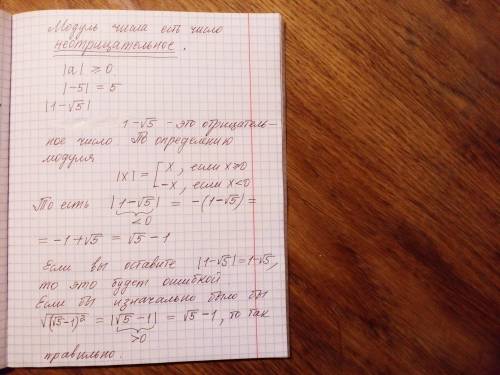 Модуль числа есть число
неотрицательное.
|a| ≥ 0
|-5| = 5
|1-√5|
1-√5 - это отрицатель-
ное число По определению
модуля
|x| = [x, если x≥0
-x, если x<0
То есть |1-√5| = -(1-√5) =
<0
= -1+√5 = √5 - 1
Если вы оставите |1-√5|=1-√5,
то это будет ошибкой
Если бы изначально было бы
√(√5-1)² = |√5-1| = √5-1, то так
>0
правильно.